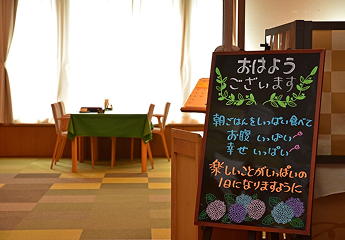 おはよう
ございます
朝ごはんをいっぱい食べて
お腹 いっぱい
幸せ いっぱい
楽しいことがいっぱいの
1日になりますように